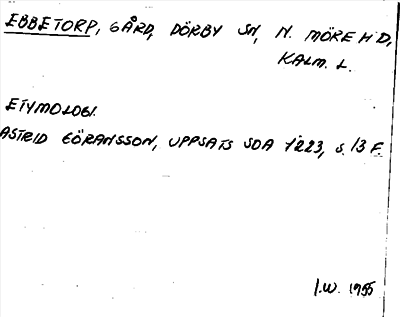 EBBETORP, GÅRD, DÖRBY SN, N. MÖRE HD,
KALM. L.
ETYMOLOGI.
ASTRID GÖRANSSON, UPPSATS SOA 1223, S. 13 F.
I.W. 1955